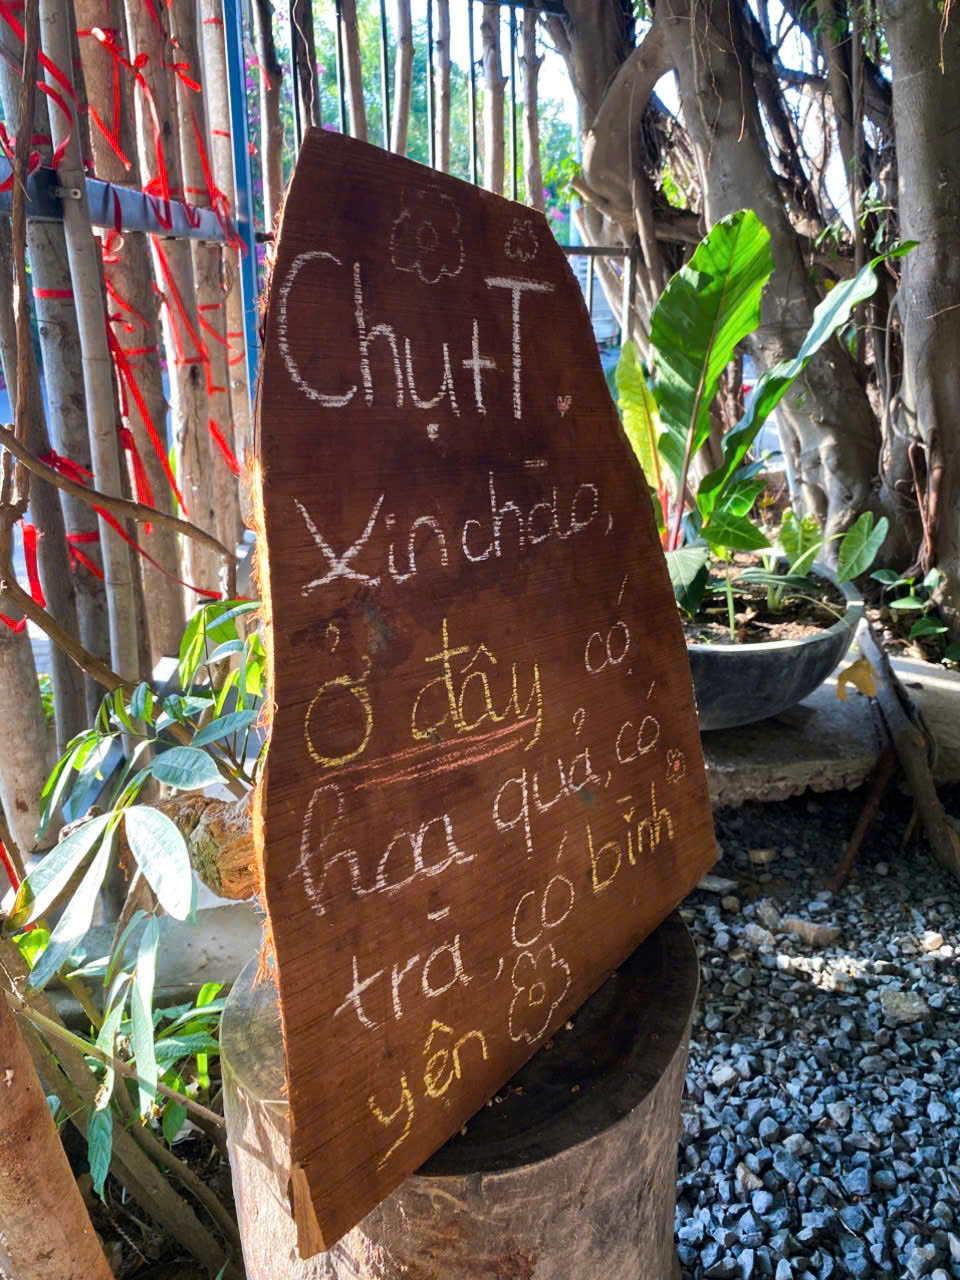 ChụtT.
Xin chào,
Ở đây có
hoa quả, có
trà, có bình
yên